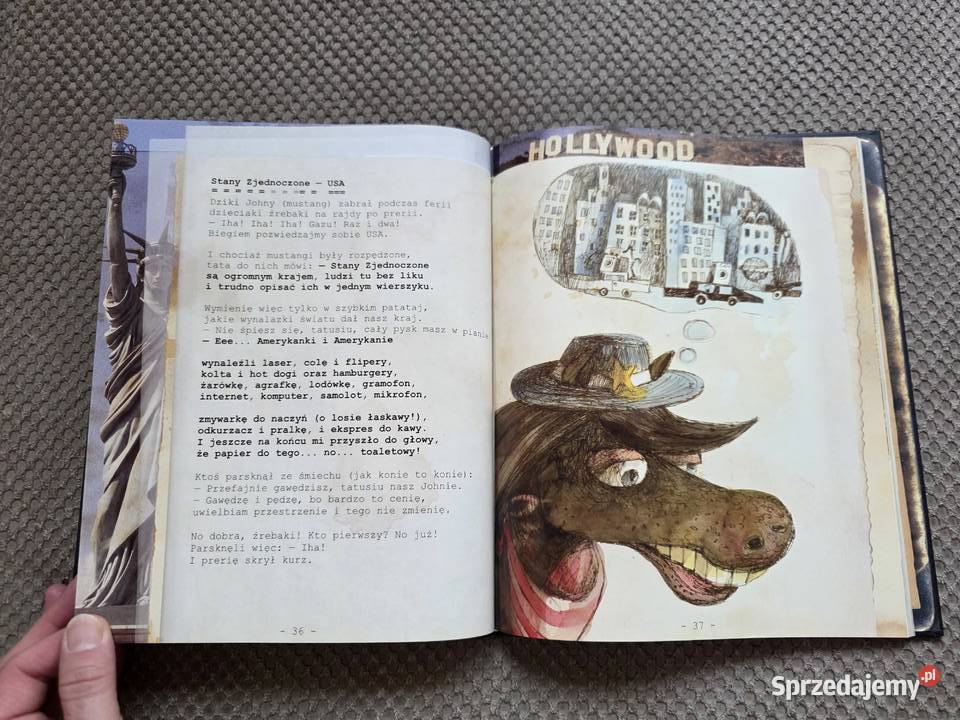 Stany Zjednoczone — USA
= = = = = = = = = ===
Dziki Johny (mustang) zabrał podczas ferii
dzieciaki źrebaki na rajdy po prerii.
— Iha! Iha! Iha! Gazu! Raz i dwa!
Biegiem pozwiedzajmy sobie USA.
I chociaż mustangi były rozpędzone,
tata do nich mówi: — Stany Zjednoczone
są ogromnym krajem, ludzi tu bez liku
i trudno opisać ich w jednym wierszyku.
Wymienię więc tylko w szybkim patataj,
jakie wynalazki światu dał nasz kraj.
— Nie śpiesz się, tatusiu, cały pysk masz w pianie
— Eee... Amerykanki i Amerykanie
wynaleźli laser, colę i flipery,
kolta i hot dogi oraz hamburgery,
żarówkę, agrafkę, lodówkę, gramofon,
internet, komputer, samolot, mikrofon,
zmywarkę do naczyń (o losie łaskawy!),
odkurzacz i pralkę, i ekspres do kawy.
I jeszcze na końcu mi przyszło do głowy,
że papier do tego... no... toaletowy!
Ktoś parsknął ze śmiechu (jak konie to konie):
— Przefajnie gawędzisz, tatusiu nasz Johnie.
— Gawędzę i pędzę, bo bardzo to cenię,
uwielbiam przestrzenie i tego nie zmienię.
No dobra, źrebaki! Kto pierwszy? No już!
Parsknęli więc: — Iha!
I prerię skrył kurz.
- 36 -
HOLLYWOOD
- 37 -
Sprzedajemy.pl